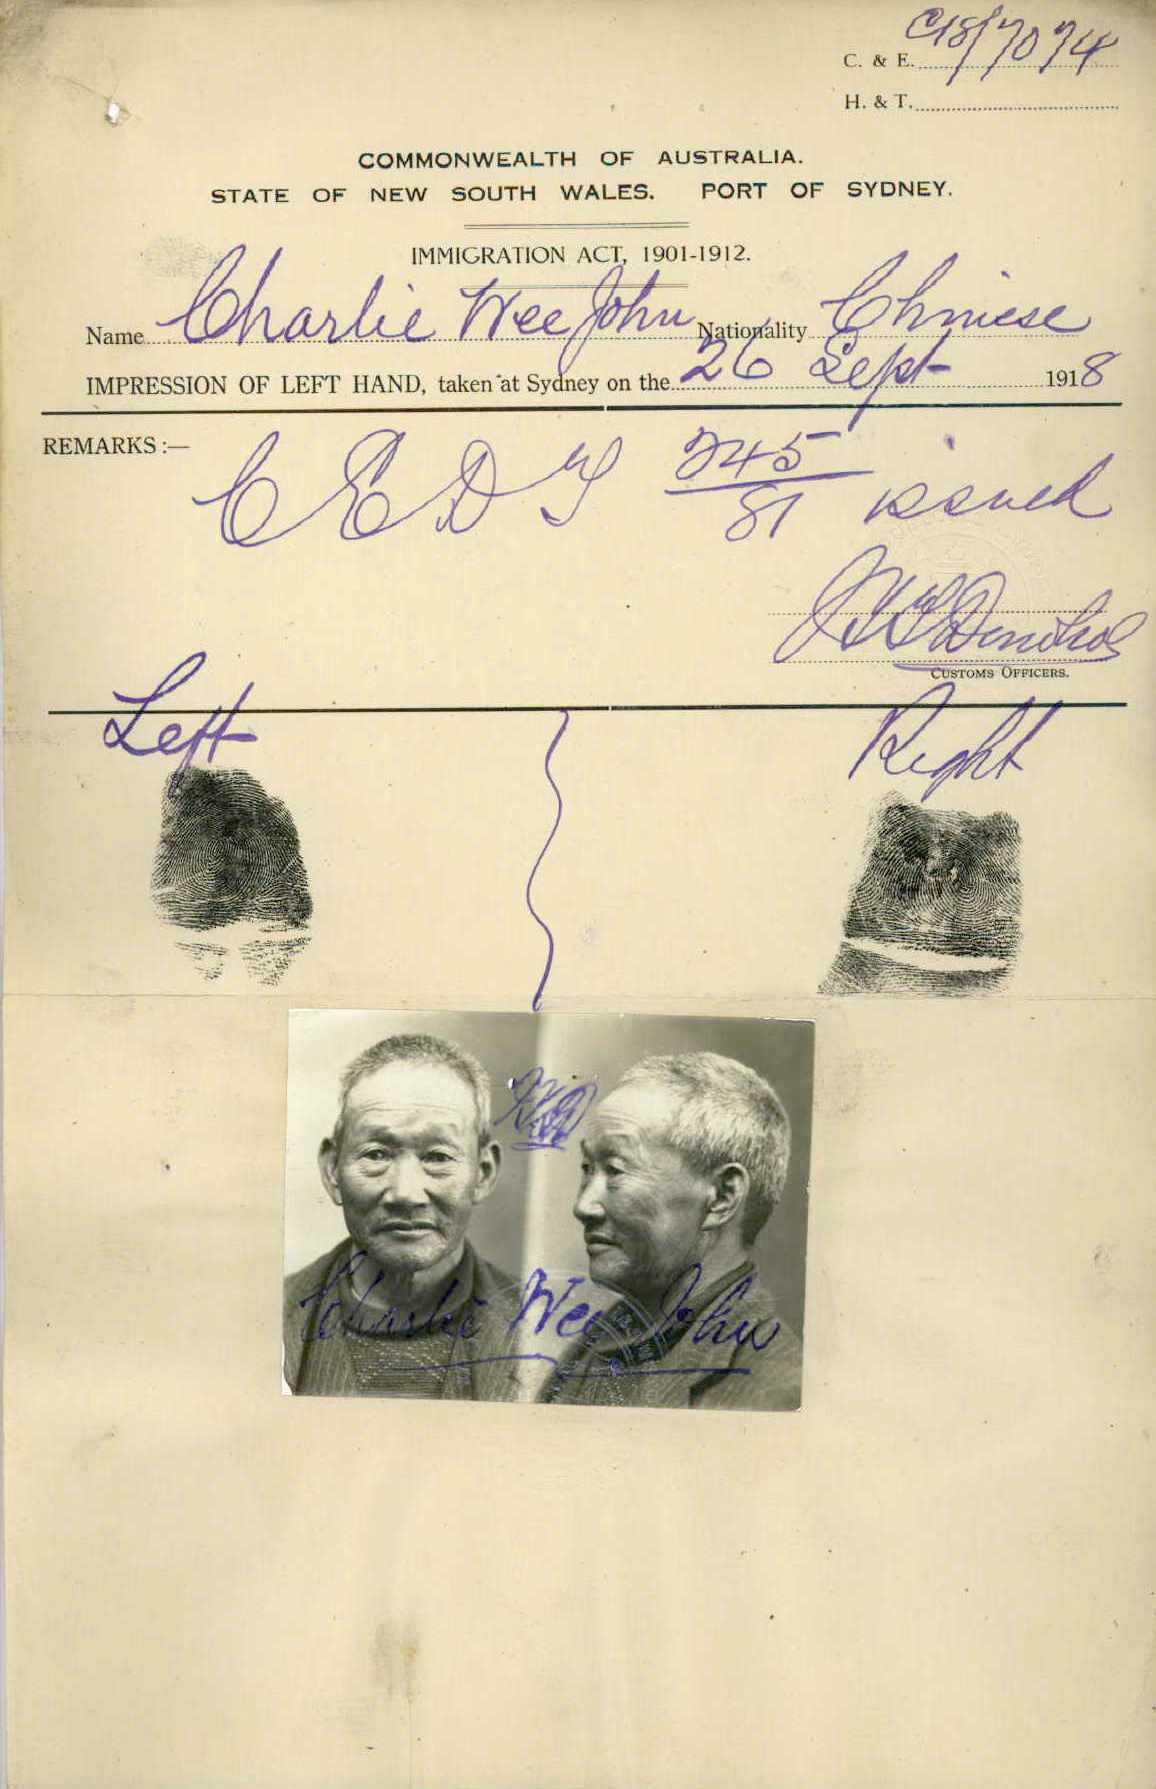 C. & E. C18/7074
H. & T.
COMMONWEALTH OF AUSTRALIA.
STATE OF NEW SOUTH WALES. PORT OF SYDNEY.
IMMIGRATION ACT, 1901-1912.
Name Charlie Wee John Nationality Chinese
IMPRESSION OF LEFT HAND, taken at Sydney on the 26 Sept 1918
REMARKS :— C E D T 245/81 issued
CUSTOMS OFFICERS.
Left Right
Charlie Wee John